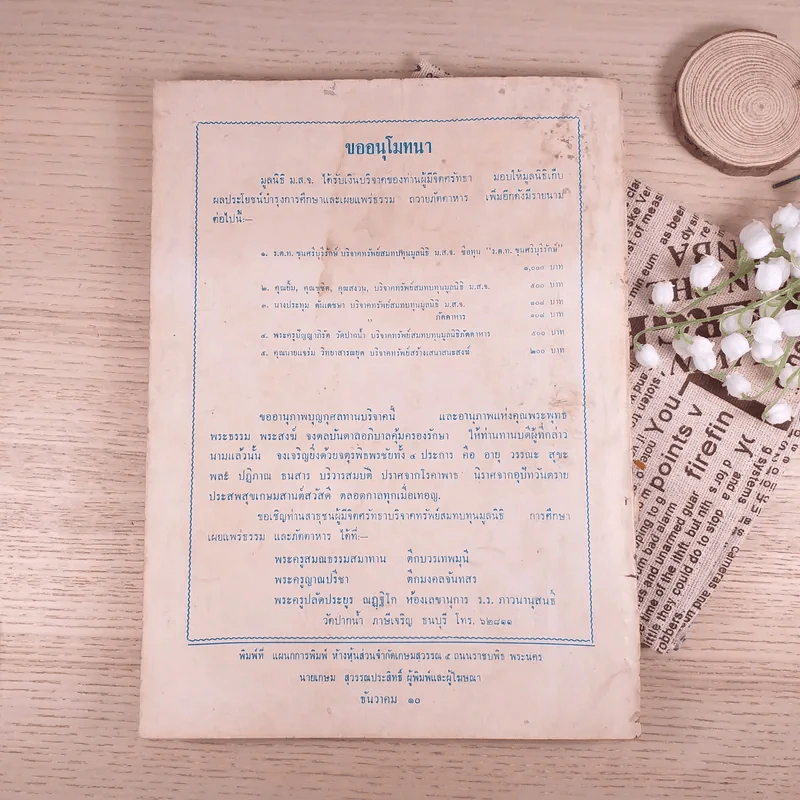 ขออนุโมทนา
มูลนิธิ ม.ส.จ. ได้รับเงินบริจาคของท่านผู้มีจิตศรัทธา มอบให้มูลนิธิเก็บ
ผลประโยชน์บำรุงการศึกษาและเผยแพร่ธรรม ถวายภัตตาหาร เพิ่มอีกดังมีรายนาม
ต่อไปนี้:—
๑. ร.ต.ท. ขุนศรีบุริรักษ์ บริจาคทรัพย์สมทบทุนมูลนิธิ ม.ส.จ. ชื่อทุน "ร.ต.ท. ขุนศรีบุริรักษ์"
๑,๐๐๐ บาท
๒. คุณยิ้ม, คุณชูชิต, คุณสงวน, บริจาคทรัพย์สมทบทุนมูลนิธิ ม.ส.จ. ๕๐๐ บาท
๓. นางประทุม ตันเตชษา บริจาคทรัพย์สมทบทุนมูลนิธิ ม.ส.จ. ๑๐๔ บาท
" ภัตตาหาร ๑๐๔ บาท
๔. พระครูปัญญาภิรัต วัดปากน้ำ บริจาคทรัพย์สมทบทุนมูลนิธิภัตตาหาร ๕๐๐ บาท
๕. คุณนายแจร่ม วิทยาสารณยุต บริจาคทรัพย์สร้างเสนาสนะสงฆ์ ๒๐๐ บาท
ขออานุภาพบุญกุศลทานบริจาคนี้ และอานุภาพแห่งคุณพระพุทธ
พระธรรม พระสงฆ์ จงดลบันดาลอภิบาลคุ้มครองรักษา ให้ท่านทานบดีผู้ที่กล่าว
นามแล้วนั้น จงเจริญยิ่งด้วยจตุรพิธพรชัยทั้ง ๔ ประการ คือ อายุ วรรณะ สุขะ
พละ ปฏิภาณ ธนสาร บริวารสมบัติ ปราศจากโรคาพาธ นิราศจากอุปัทวันตราย
ประสพสุขเกษมสานต์สวัสดิ์ ตลอดกาลทุกเมื่อเทอญ.
ขอเชิญท่านสาธุชนผู้มีจิตศรัทธาบริจาคทรัพย์สมทบทุนมูลนิธิ การศึกษา
เผยแพร่ธรรม และภัตตาหาร ได้ที่:—
พระครูสมณธรรมสมาทาน ตึกบวรเทพมุนี
พระครูญาณปรีชา ตึกมงคลจันทสร
พระครูปลัดประยูร ณฏฺฐิโก ห้องเลขานุการ ร.ร. ภาวนานุสนธิ์
วัดปากน้ำ ภาษีเจริญ ธนบุรี โทร. ๖๒๘๑๑
พิมพ์ที่ แผนกการพิมพ์ ห้างหุ้นส่วนจำกัดเกษมสุวรรณ ๕ ถนนราชบพิธ พระนคร
นายเกษม สุวรรณประสิทธิ์ ผู้พิมพ์และผู้โฆษณา
ธันวาคม ๑๐
You
points
firefin